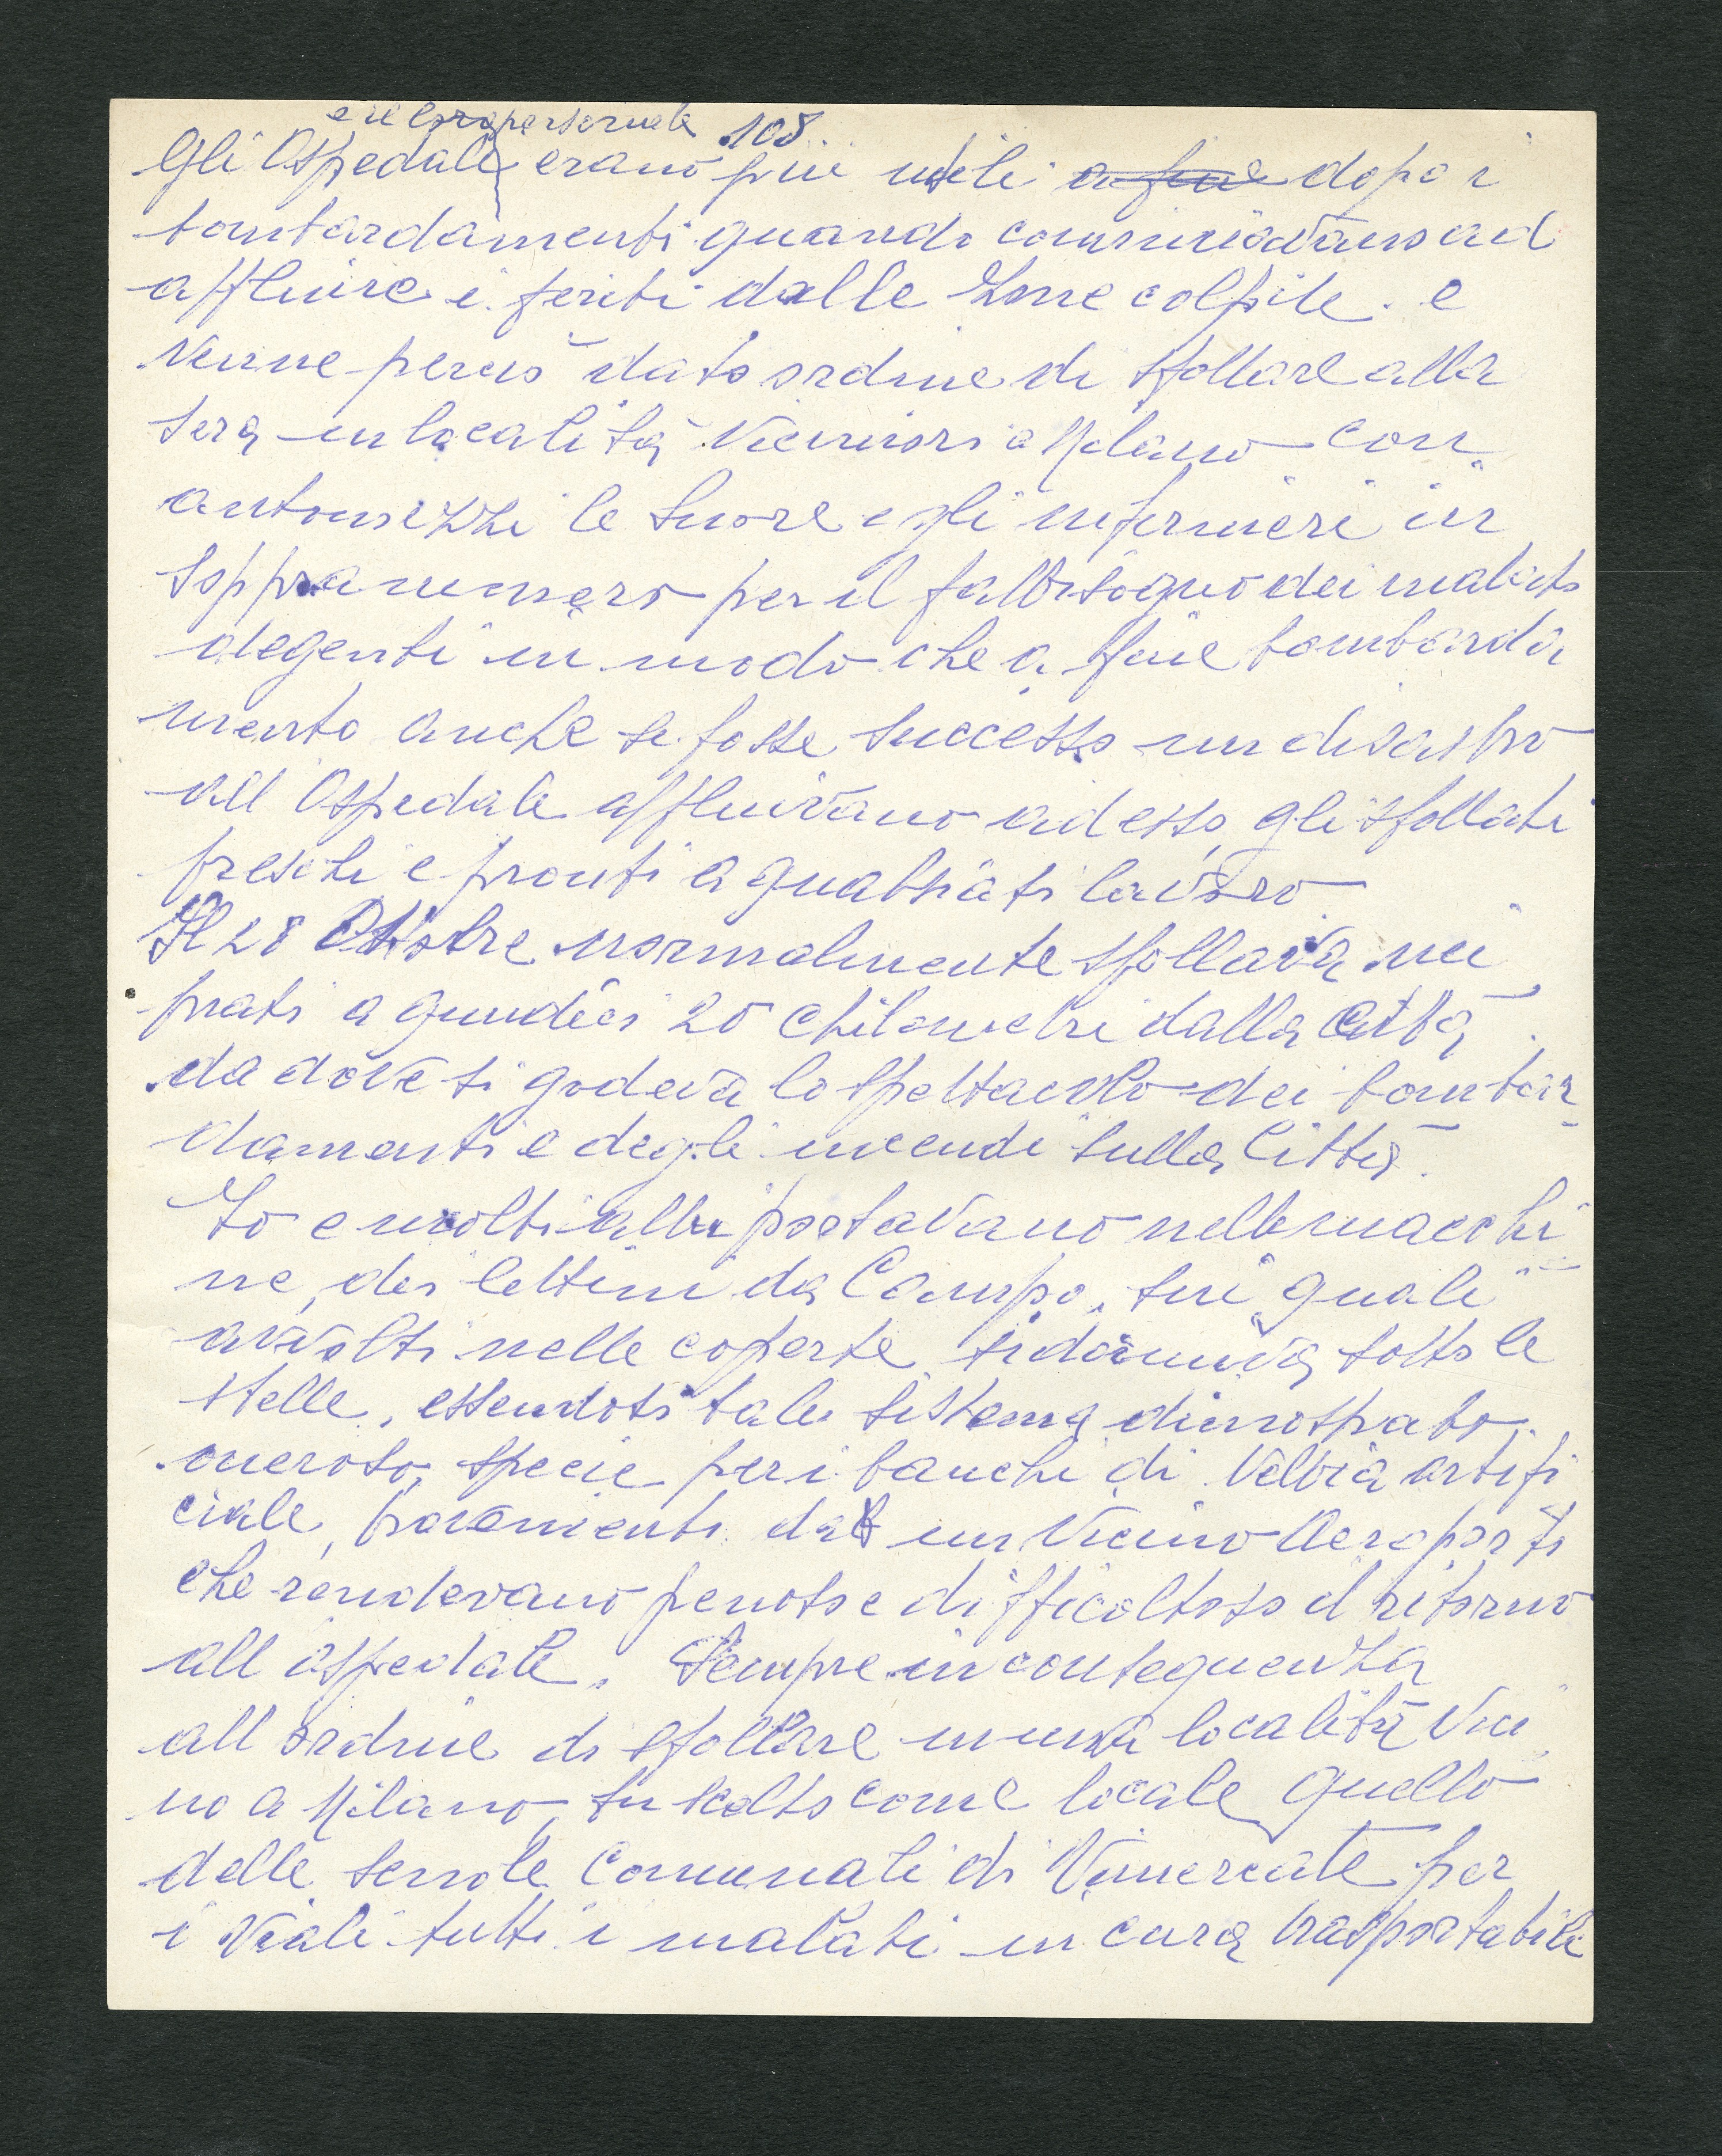 e il loro personale 108
Gli Ospedali erano più utili a fine dopo i
bombardamenti quando cominciavano ad
affluire i feriti dalle zone colpite. e
Venne perciò dato ordine di sfollare alla
sera in località viciniori a Milano con
automezzi le Suore e gli infermieri in
soppranumero per il fabbisogno dei malati
degenti in modo che a fine bombarda
mento anche se fosse successo un disastro
all Ospedale affluivano ad esso gli sfollati
freschi e pronti a qualsiasi lavoro.
Il 28 Ottobre normalmente sfollava nei
prati a quindici 20 chilometri dalla città
da dove si godeva lo spettacolo dei bombar
damenti e degli incendi sulla Città.
Io e molti altri portavano nelle macchi
ne, dei lettini da Campo, sui quali
avvolti nelle coperte si dormiva sotto le
stelle, essendosi tale sistema dimostrato
oneroso, specie per i banchi di nebbia artifi
ciale, provenienti da un Vicino Aeroporto
che rendevano penoso e difficoltoso il ritorno
all ospedale. Sempre in conseguenza
all ordine di sfollare in una località vici
no a Milano, fu scelto come locale quello
delle scuole Comunali di Vimercate per
i Viali tutti i malati in cura trasportabili